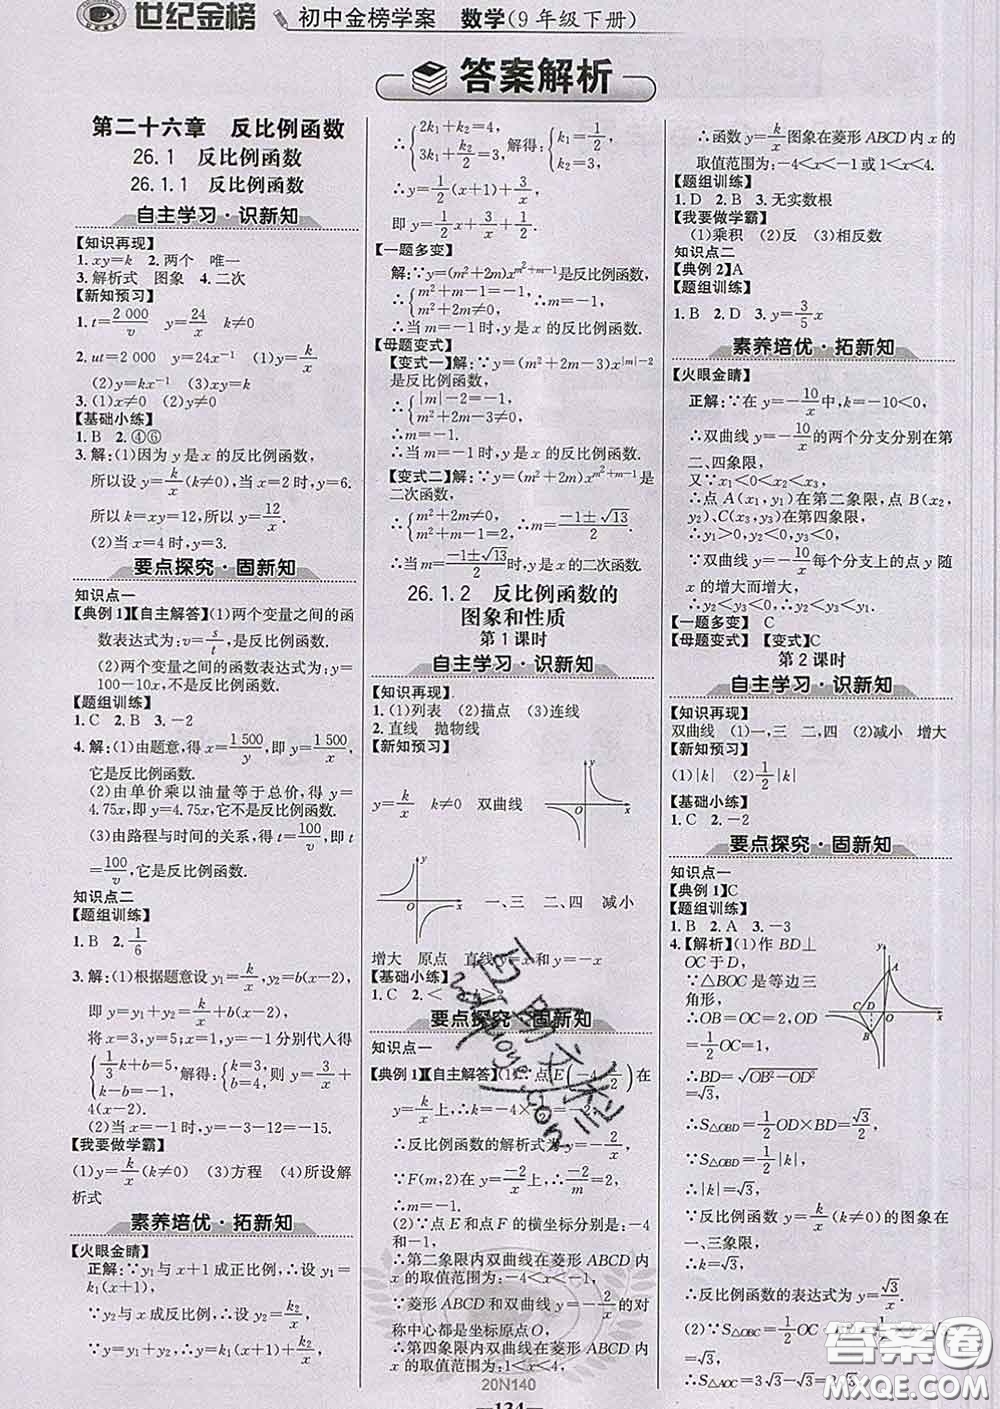 世纪金榜 初中金榜学案 数学(9年级下册)
答案解析
第二十六章 反比例函数
26.1 反比例函数
26.1.1 反比例函数
自主学习·识新知
【知识再现】
1.xy=k 2.两个 唯一
3.解析式 图象 4.二次
【新知预习】
1.t=2 000/v y=24/x k≠0
2.ut=2 000 y=24x⁻¹ (1)y=k/x
(2)y=kx⁻¹ (3)xy=k
3.(1)x≠0 (2)y≠0
【基础小练】
1.B 2.④⑥
3.解:(1)因为y是x的反比例函数,
所以设y=k/x(k≠0),当x=2时,y=6.
所以k=xy=12,所以y=12/x.
(2)当x=4时,y=3.
要点探究·固新知
知识点一
【典例1】【自主解答】(1)两个变量之间的函
数表达式为:v=s/t,是反比例函数.
(2)两个变量之间的函数表达式为:y=
100-10x,不是反比例函数.
【题组训练】
1.C 2.B 3.-2
4.解:(1)由题意,得x=1 500/y,即y=1 500/x,
它是反比例函数.
(2)由单价乘以油量等于总价,得y=
4.75x,即y=4.75x,它不是反比例函数.
(3)由路程与时间的关系,得t=100/v,即t
=100/v,它是反比例函数.
知识点二
【题组训练】
1.B 2.1/6
3.解:(1)根据题意设y₁=k/x,y₂=b(x-2),
即y=y₁+y₂=k/x+b(x-2),
将x=3,y=5;x=1,y=-1分别代入得
{1/3k+b=5, k-b=-1, 解得:{k=3, b=4, 则y=3/x+
4(x-2).
(2)当x=-1时,y=-3-12=-15.
【我要做学霸】
(1)y=k/x(k≠0) (3)方程 (4)所设解
析式
素养培优·拓新知
【火眼金睛】
正解:∵y₁与x+1成正比例,∴设y₁=
k₁(x+1),
∵y₂与x成反比例,∴设y₂=k₂/x,
∵y=y₁+y₂,∴y=k₁(x+1)+k₂/x,
∴{2k₁+k₂=4, 3k₁+k₂/2=3, 解得:{k₁=1/2, k₂=3,
∴y=1/2(x+1)+3/x,
即y=1/2x+3/x+1/2.
【一题多变】
解:∵y=(m²+2m)x^(m²+m-1)是反比例函数,
∴{m²+m-1=-1, m²+2m≠0, ∴m=-1,
∴当m=-1时,y是x的反比例函数.
【母题变式】
【变式一】解:∵y=(m²+2m-3)x^(|m|-2)
是反比例函数,
∴{|m|-2=-1, m²+2m-3≠0,
∴m=-1.
∴当m=-1时,y是x的反比例函数.
【变式二】解:∵y=(m²+2m)x^(m²+m-1)是
二次函数,
∴{m²+m-1=2, m²+2m≠0, ∴m=(-1±√13)/2,
∴当m=(-1±√13)/2时,y是x的二次函数.
26.1.2 反比例函数的
图象和性质
第1课时
自主学习·识新知
【知识再现】
1.(1)列表 (2)描点 (3)连线
2.直线 抛物线
【新知预习】
y=k/x k≠0 双曲线
y O x
y O x
一、三 二、四 减小
增大 原点 直线y=x和y=-x
【基础小练】
1.C 2.<
要点探究·固新知
知识点一
【典例1】【自主解答】(1)∵点E(-4,1/2)在
y=k/x上,∴k=-2,
∴反比例函数的解析式为y=-2/x,
∵F(m,2)在y=-2/x上,∴2=-2/m,
∴m=-1.
(2)∵点E和点F的横坐标分别是:-4
和-1,
∴第二象限内双曲线在菱形ABCD内
x的取值范围为:-4<x<-1,
∵菱形ABCD和双曲线y=-2/x的对
称中心都是坐标原点O,
∴第四象限内双曲线在菱形ABCD内
x的取值范围为:1<x<4,
∴函数y=k/x图象在菱形ABCD内x的
取值范围为:-4<x<-1或1<x<4.
【题组训练】
1.D 2.B 3.无实数根
【我要做学霸】
(1)乘积 (2)反 (3)相反数
知识点二
【典例2】A
【题组训练】
1.B 2.D 3.y=3/5x
素养培优·拓新知
【火眼金睛】
正解:∵在y=-10/x中,k=-10<0,
∴双曲线y=-10/x的两个分支分别在第
二、四象限,
又∵x₁<0<x₂<x₃,
∴点A(x₁,y₁)在第二象限,点B(x₂,
y₂),C(x₃,y₃)在第四象限,
∴y₁>0,y₂<0,y₃<0,
∵双曲线y=-10/x每个分支上的点y随x
的增大而增大,
∴y₂<y₃,∴y₂<y₃<y₁.
【一题多变】 C
【母题变式】 【变式】C
第2课时
自主学习·识新知
【知识再现】
双曲线 (1)一、三 二、四 (2)减小 增大
【新知预习】
(1)|k| (2)1/2|k|
【基础小练】
1.C 2.-2
要点探究·固新知
知识点一
【典例1】C
【题组训练】
1.B 2.A 3.-3
4.【解析】(1)作BD⊥
OC于D,
∵△BOC是等边三
角形,
∴OB=OC=2,OD
=1/2OC=1,
∴BD=√(OB²-OD²)
=√3,
y A C D O x B
∴S△OBD=1/2OD×BD=√3/2,
∵S△OBD=1/2|k|,
∴|k|=√3,
∵反比例函数y=k/x(k≠0)的图象在
一、三象限,
∴k=√3,
∴反比例函数的表达式为y=√3/x.
(2)∵S△OBC=1/2OC·BD=1/2×2×
√3=√3,
∴S△AOC=3√3-√3=2√3,
20N140
134
答案圈
MXQE.COM